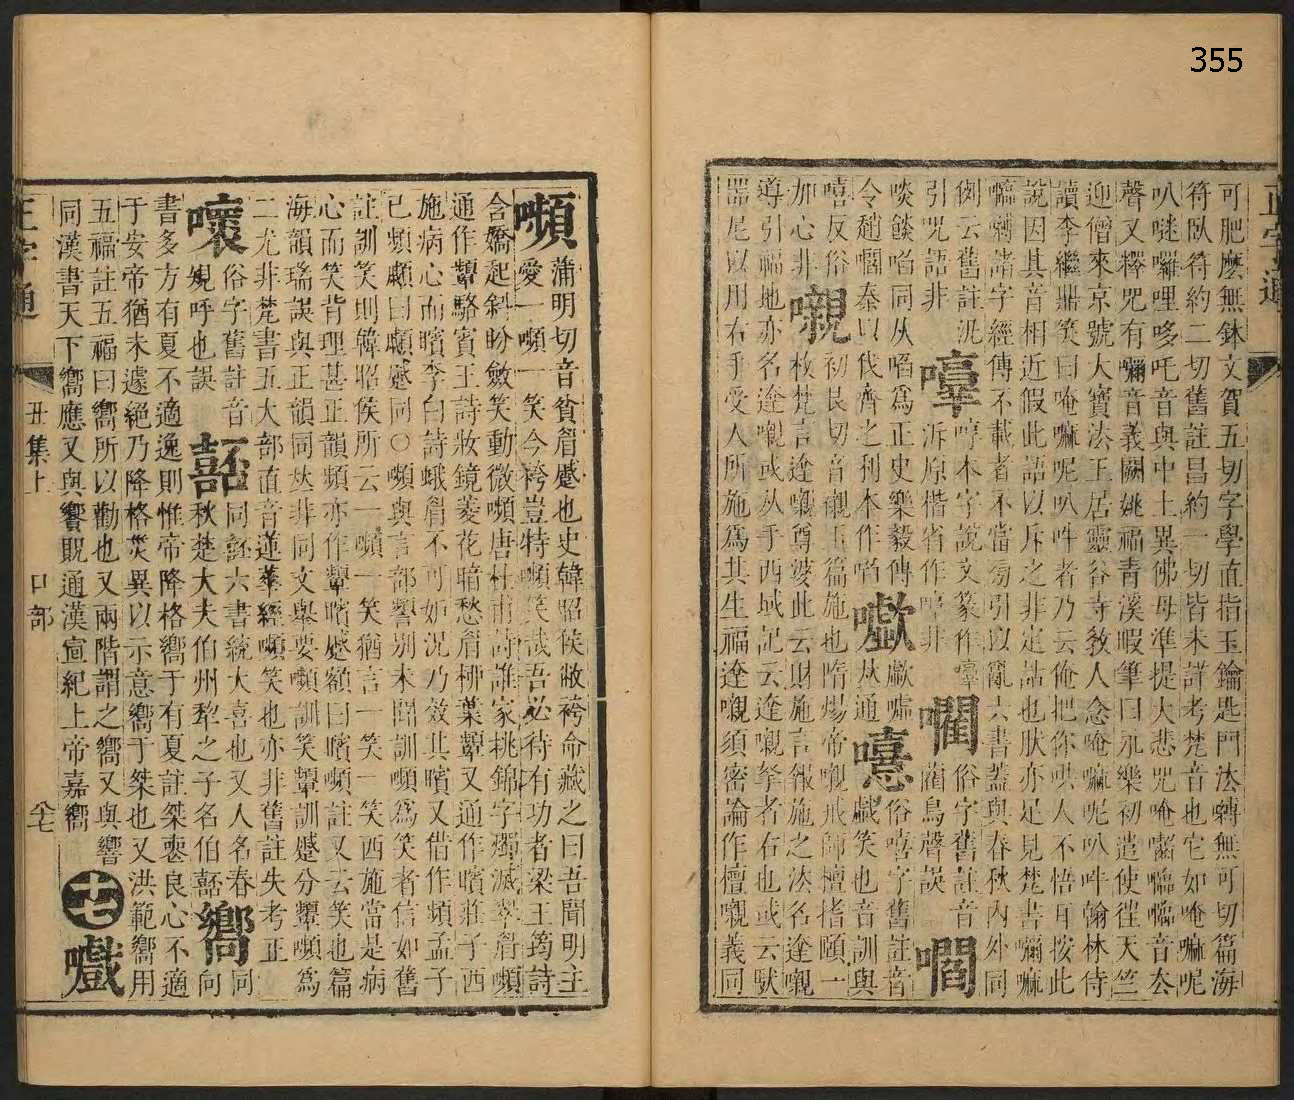 355
正字通
可肥麽無鉢文賀五切字學直指玉鑰匙門法轉無可切篇海
符臥符約二切舊註昌約一切皆未詳考梵音也它如唵嘛呢
叭噠囉哩哆吒音與中土異佛母準提大悲咒唵音厺
聲又釋咒有嚩音義闕姚福青溪暇筆曰永樂初遣使徃天竺
迎僧來京號大寶法王居靈谷寺敎人念唵嘛呢叭吽翰林侍
讀李繼鼎笑曰唵嘛呢叭吽者乃云俺把你哄人不悟耳按此
說因其音相近假此語以斥之非定詁也肰亦足見梵書嘛
諸字經傳不載者不當匆引以亂六書蓋與春秋內外同
例云舊註汎 嚤 哼本字說文篆作 嚪 俗字舊註音 嚪
引咒語非 泝原楷省作啍非 藺鳥聲誤
啖餤啗同从啗爲正史樂毅傳 歔噓 俗嘻字舊註音
令趙嚪秦以伐齊之利本作啗 从通 戲笑也音訓與
嘻反俗 嚫 初艮切音襯玉篇施也隋煬帝嚫戒師檀㨖頤一
加心非 枚梵言逹嚫尊婆此云財施言報施之法名逹嚫
導引福地亦名逹嚫或从手西域記云逹嚫拏者右也或云馱
器尼以用右手受人所施爲其生福逹嚫須密論作檀嚫義同
嚬 蒲明切音貧眉蹙也史韓昭侯敝袴命藏之曰吾聞明主
愛一嚬一笑今袴豈特嚬笑哉吾必待有功者梁王筠詩
含嬌起斜盼斂笑動微嚬唐杜甫詩誰家桃錦字濁滅翠眉嚬
通作顰駱賓王詩妝鏡菱花暗愁眉柳葉顰又通作矉莊子西
施病心而矉李白詩蛾眉不可妒況乃效其矉又借作頻孟子
己頻顣曰顣蹙同○嚬與言部響别未嘗訓嚬爲笑者信如舊
註訓笑則韓昭侯所云一嚬一笑猶言一笑一笑西施當是病
心而笑背理甚正韻頻亦作顰矉蹙額曰矉嚬註又云笑也篇
海韻瑞誤與正韻同夶非同文舉要嚬訓笑顰訓蹙分顰嚬爲
二尤非梵書五大部直音蓮華經嚬笑也亦非舊註失考正
嚷 俗字舊註音 嚭 同噽六書統大喜也又人名春 嚮 同
規呼也誤 秋楚大夫伯州犂之子名伯嚭 向
書多方有夏不適逸則惟帝降格嚮于有夏註桀喪良心不適
于安帝猶未遽絕乃降格災異以示意嚮于桀也又洪範嚮用
五福註五福曰嚮所以勸也又兩階謂之嚮又與響
同漢書天下嚮應又與饗貺通漢宣紀上帝嘉嚮 十七 嚱
正字通 丑集上 口部 六七